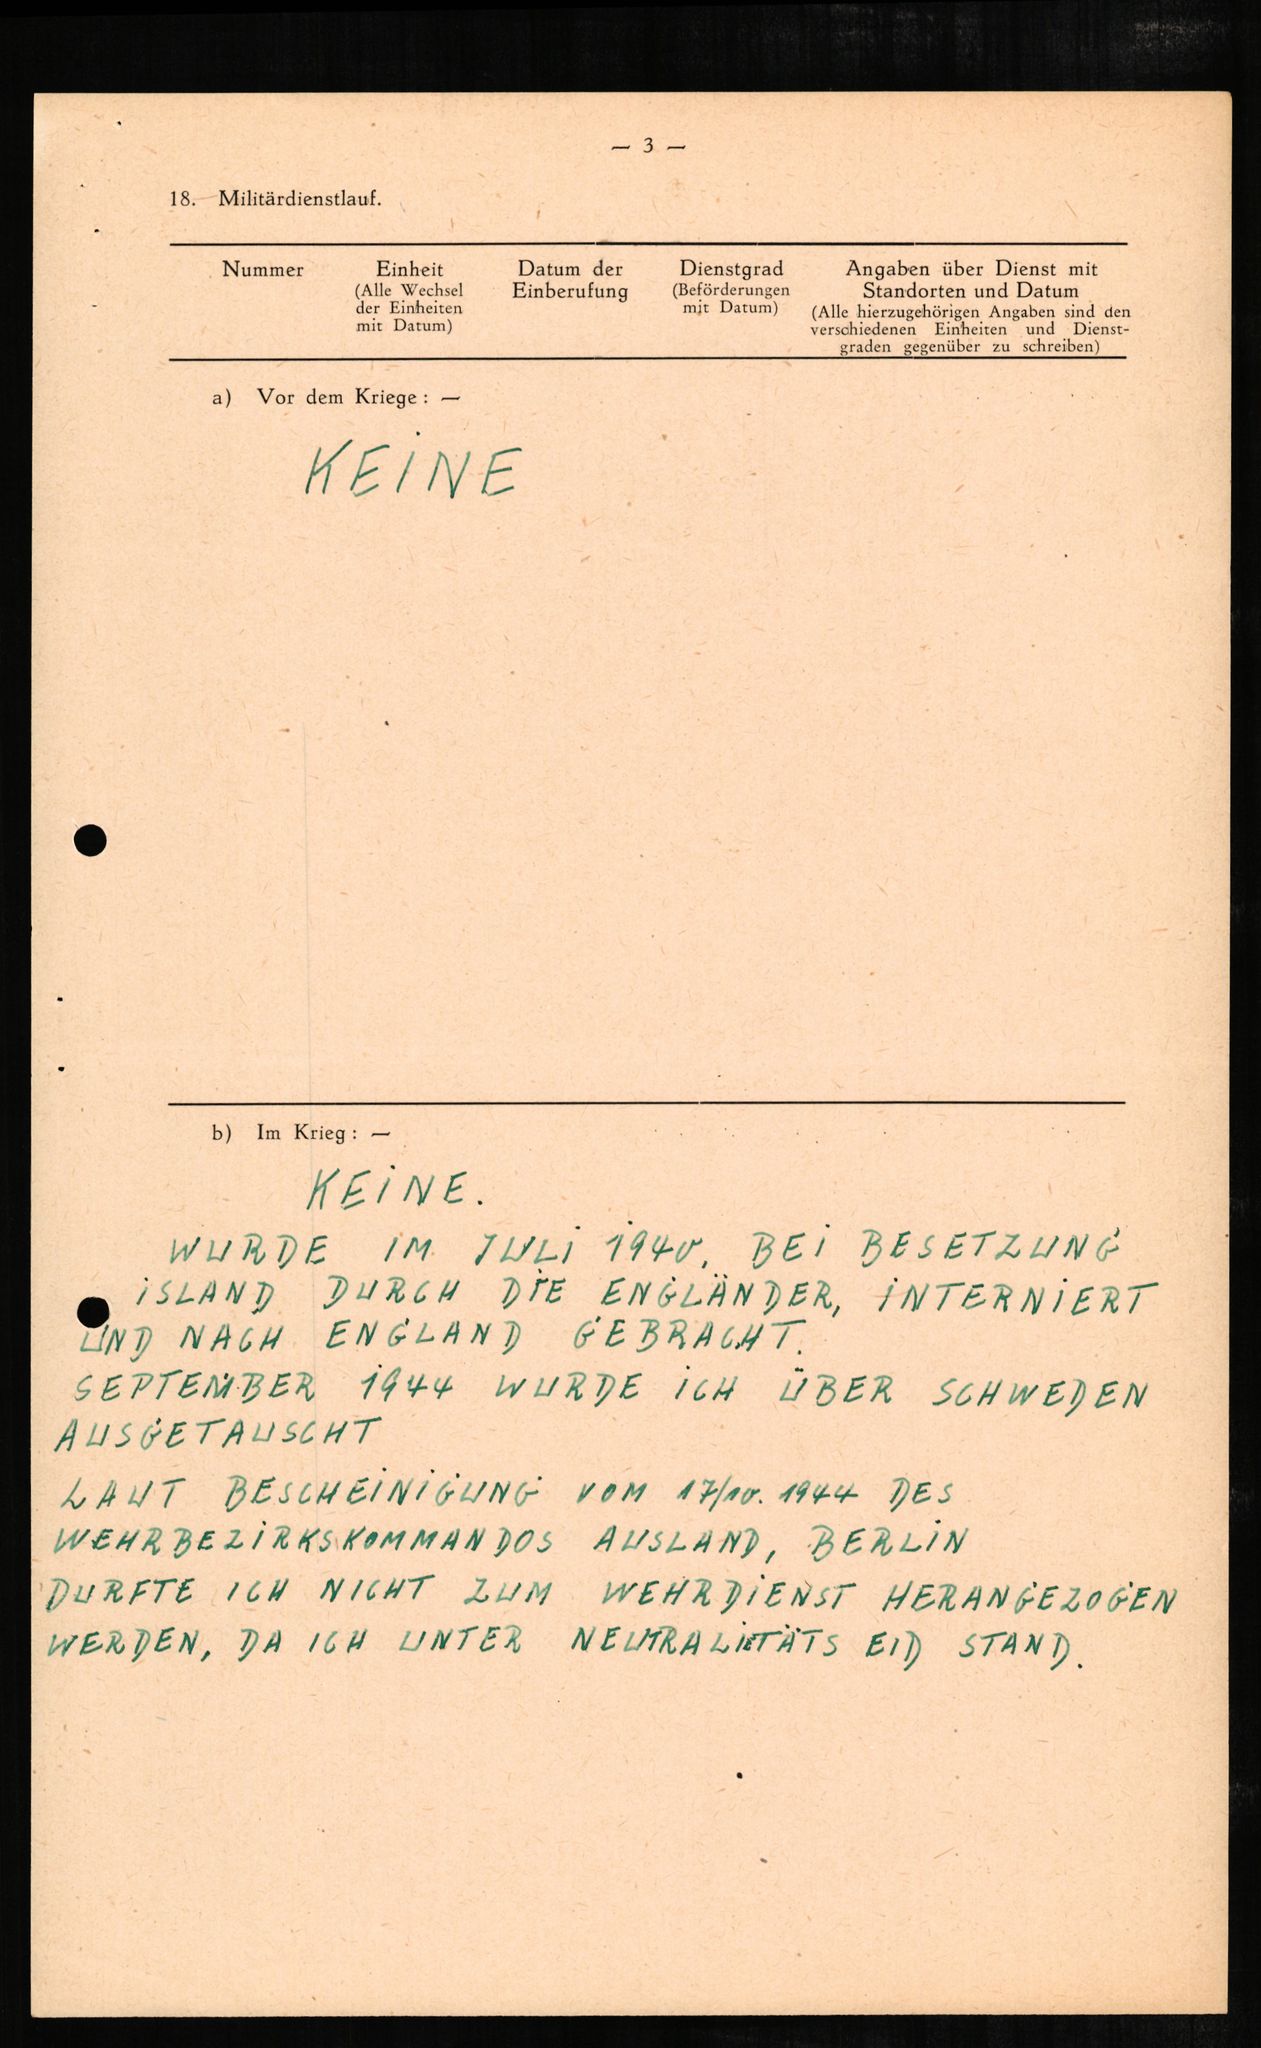 — 3 —
18. Militärdienstlauf.
Nummer
Einheit
(Alle Wechsel
der Einheiten
mit Datum)
Datum der
Einberufung
Dienstgrad
(Beförderungen
mit Datum)
Angaben über Dienst mit
Standorten und Datum
(Alle hierzugehörigen Angaben sind den
verschiedenen Einheiten und Dienst-
graden gegenüber zu schreiben)
a) Vor dem Kriege : —
KEINE
b) Im Krieg : —
KEINE.
WURDE IM JULI 1940, BEI BESETZUNG
ISLAND DURCH DIE ENGLÄNDER, INTERNIERT
UND NACH ENGLAND GEBRACHT.
SEPTEMBER 1944 WURDE ICH ÜBER SCHWEDEN
AUSGETAUSCHT
LAUT BESCHEINIGUNG VOM 17/10. 1944 DES
WEHRBEZIRKSKOMMANDOS AUSLAND, BERLIN
DURFTE ICH NICHT ZUM WEHRDIENST HERANGEZOGEN
WERDEN, DA ICH UNTER NEUTRALITÄTS EID STAND.